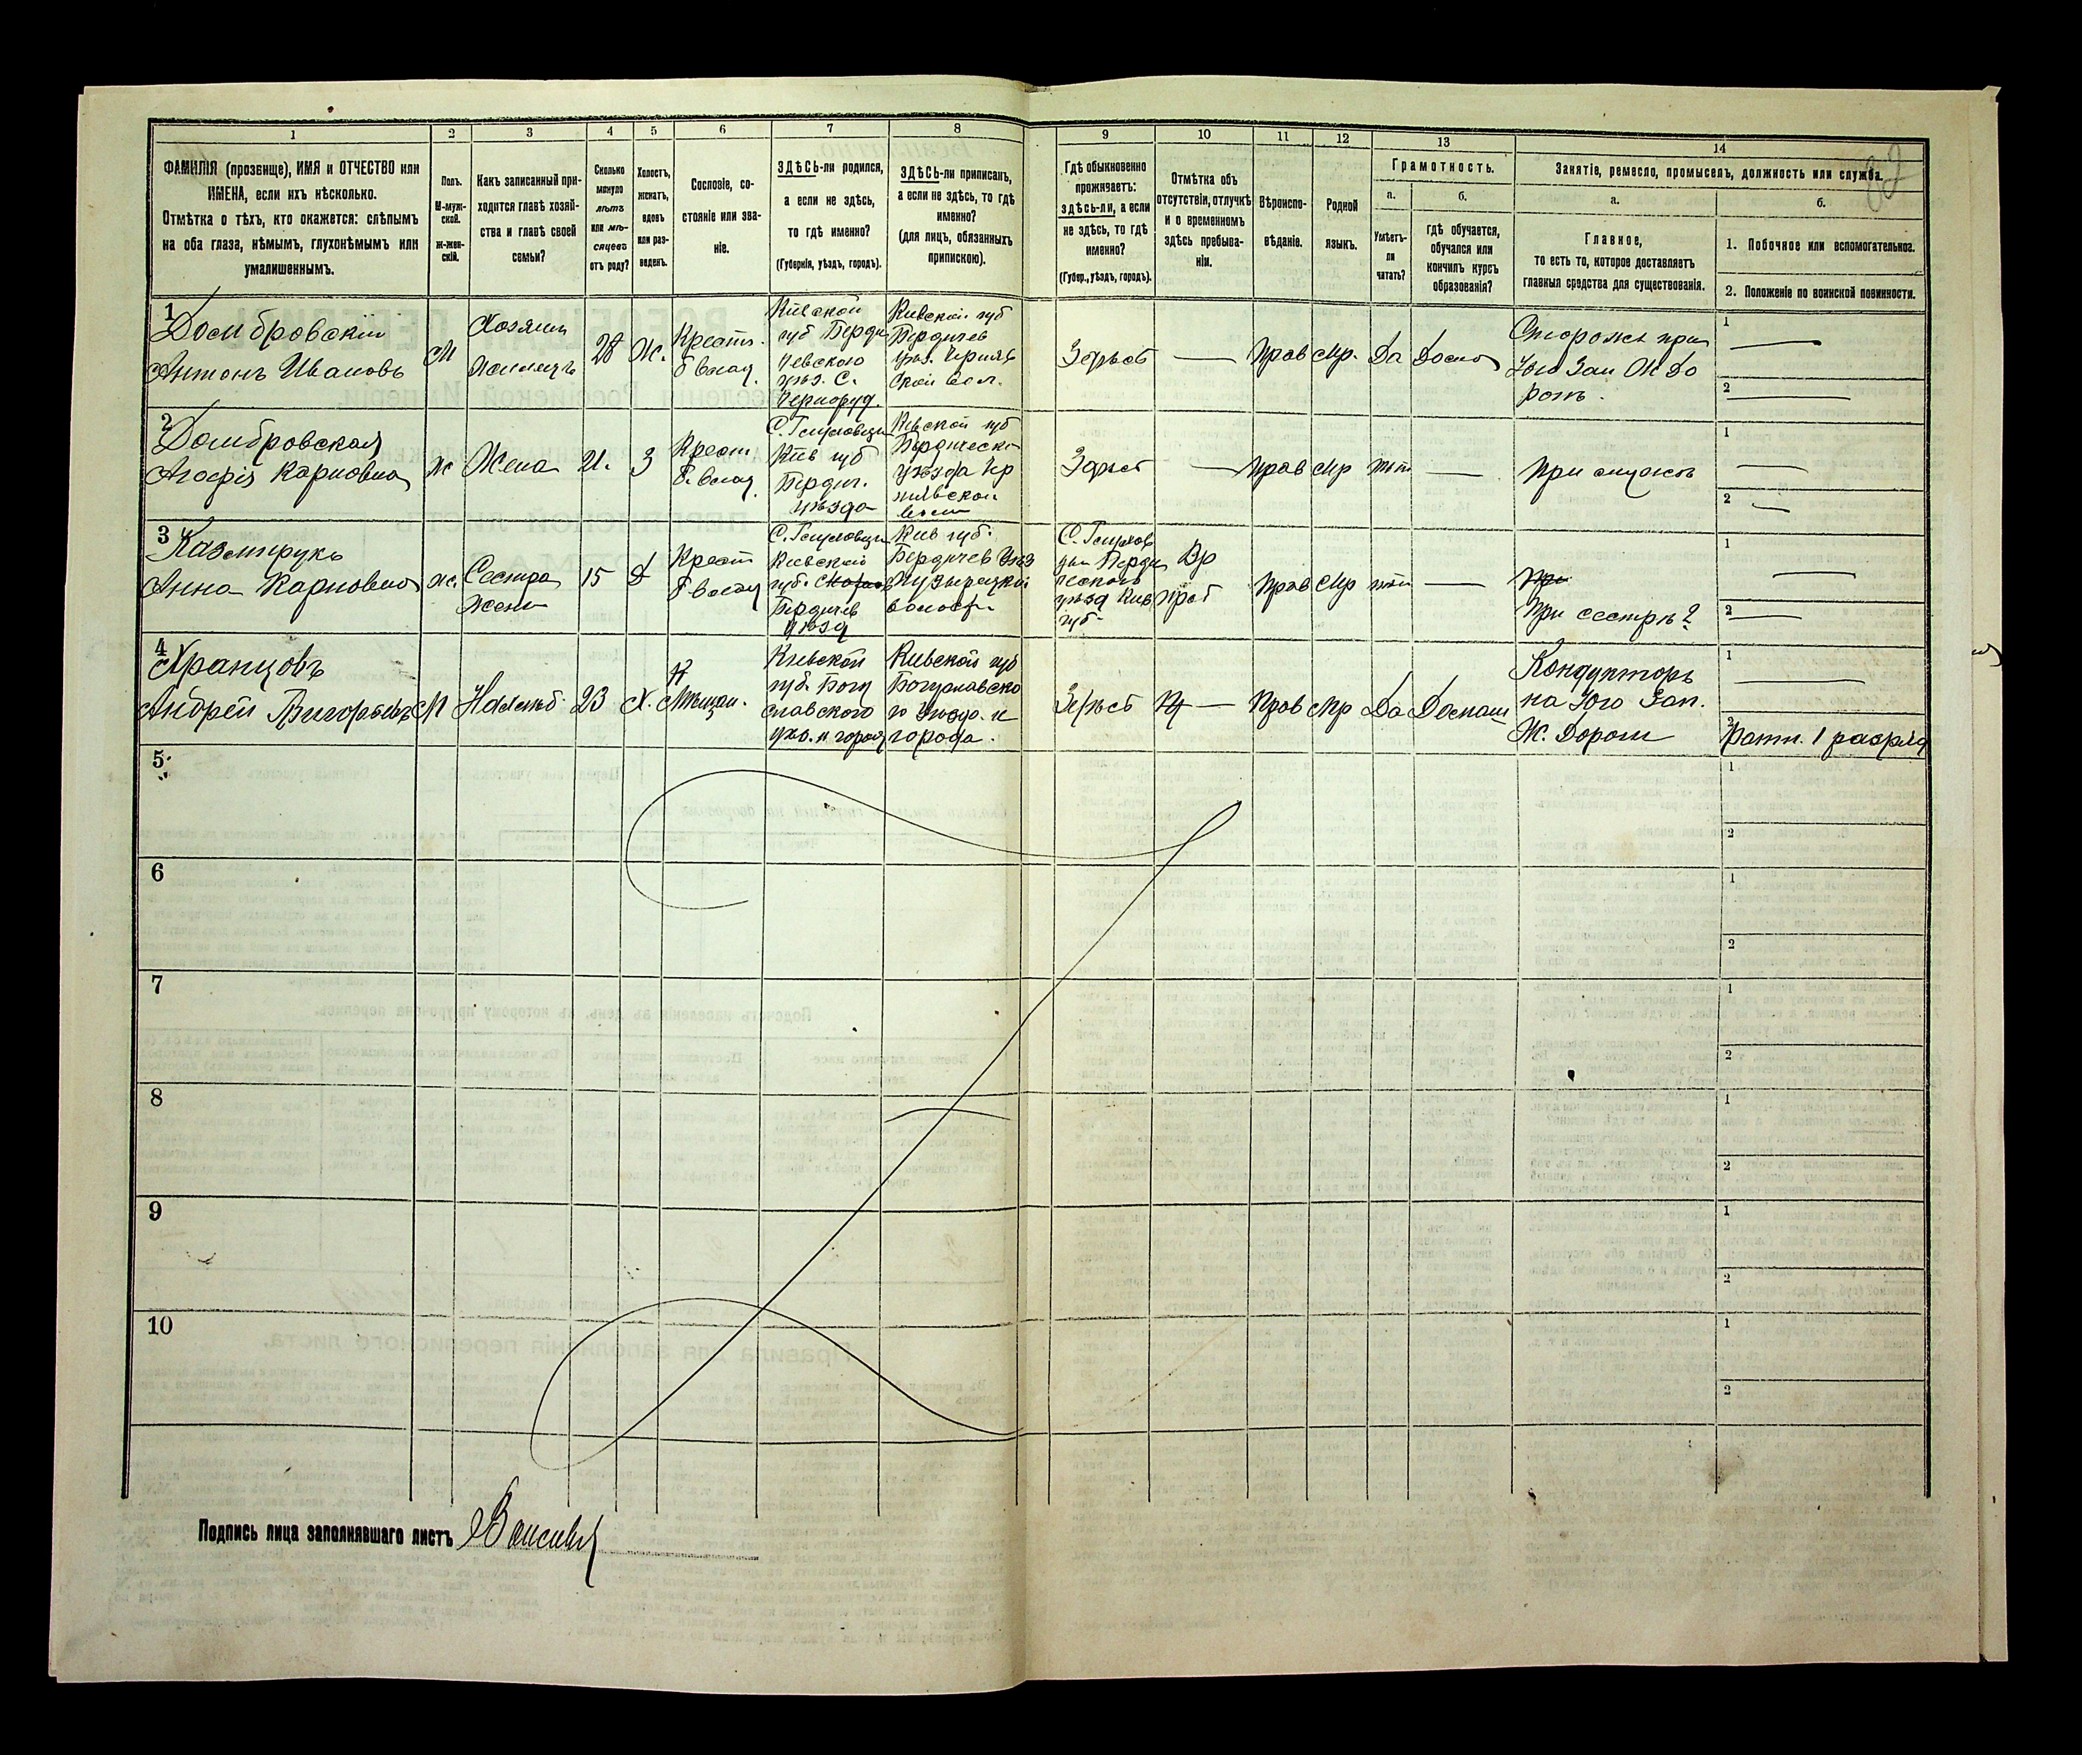 1 2 3 4 5 6 7 8 9 10 11 12 13 14
ФАМИЛІЯ (прозвище), ИМЯ и ОТЧЕСТВО или
ИМЕНА, если ихъ нѣсколько.
Отмѣтка о тѣхъ, кто окажется: слѣпымъ
на оба глаза, нѣмымъ, глухонѣмымъ или
умалишеннымъ.
Полъ.
М-муж-
ской.
Ж-жен-
скій.
Какъ записанный при-
ходится главѣ хозяй-
ства и главѣ своей
семьи?
Сколько
минуло
лѣтъ
или мѣ-
сяцевъ
отъ роду?
Холостъ,
женатъ,
вдовъ
или раз-
веденъ.
Сословіе, со-
стояніе или зва-
ніе.
ЗДѢСЬ-ли родился,
а если не здѣсь,
то гдѣ именно?
(Губернія, уѣздъ, городъ).
ЗДѢСЬ-ли приписанъ,
а если не здѣсь, то гдѣ
именно?
(для лицъ, обязанныхъ
припискою).
Гдѣ обыкновенно
проживаетъ:
здѣсь-ли, а если
не здѣсь, то гдѣ
именно?
(Губер., уѣздъ, городъ).
Отмѣтка объ
отсутствіи, отлучкѣ
и о временномъ
здѣсь пребыва-
ніи.
Вѣроиспо-
вѣданіе.
Родной
языкъ.
Грамотность.
а.
Умѣетъ-
ли
читать?
б.
гдѣ обучается,
обучался или
кончилъ курсъ
образованія?
Занятіе, ремесло, промыселъ, должность или служба.
а.
Главное,
то есть то, которое доставляетъ
главныя средства для существованія.
б.
1. Побочное или вспомогательное.
2. Положеніе по воинской повинности.
1
Домбровскій
Антонъ Ивановъ
М
Хозяинъ
28
Ж.
Крест.
Кіевской
губ Берди
чевского
уѣз. С.
Кивской губ
Бердичев
уѣз.
вол.
Здѣсь
Прав
Мр.
Да
Сторожъ при
Юго Зап Ж До
рогѣ.
1
2
2
Домбровская
Агафія Карповна
ж
Жена
21.
З
Крест
Кіив губ
Бердич.
уѣзда
Кивской губ
уѣзда
Здѣсь
Прав
Мр
нѣт
При мужѣ
1
2
3
Казмирукъ
Анна Карповна
ж.
Сестра
жены
15
Д
Крест
Киевской
губ.
Бердичев
уѣзд
Кив губ.
Бердичев Уѣз
волости
уѣзд Кив
губ.
Вр
Прав
Мр
нѣт
При
При сестрѣ
1
2
4
Хранцовъ
Андрей
М
23
Х.
Мѣщан.
Киевской
губ. Богу
славского
уѣз. и город
Кивской губ
Богуславско
го Уѣзда. и
города.
Здѣсь
Прав
Мр
Да
Кондукторъ
на Юго Зап.
Ж. Дороги
1
2
Ратн. 1 разряд
5
1
2
6
1
2
7
1
2
8
1
2
9
1
2
10
1
2
Подпись лица заполнявшаго листъ